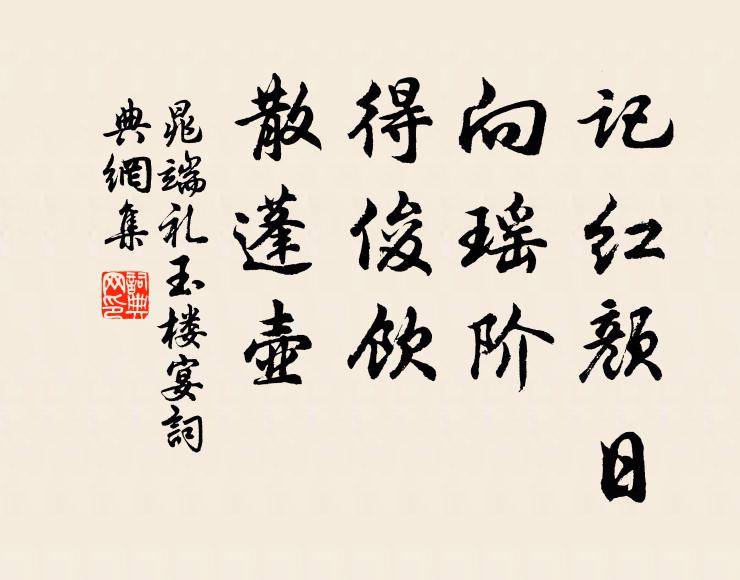 记红颜日
向瑶阶
得俊饮
散蓬壶
晁端礼玉楼宴詞
典網集
詞典
网印